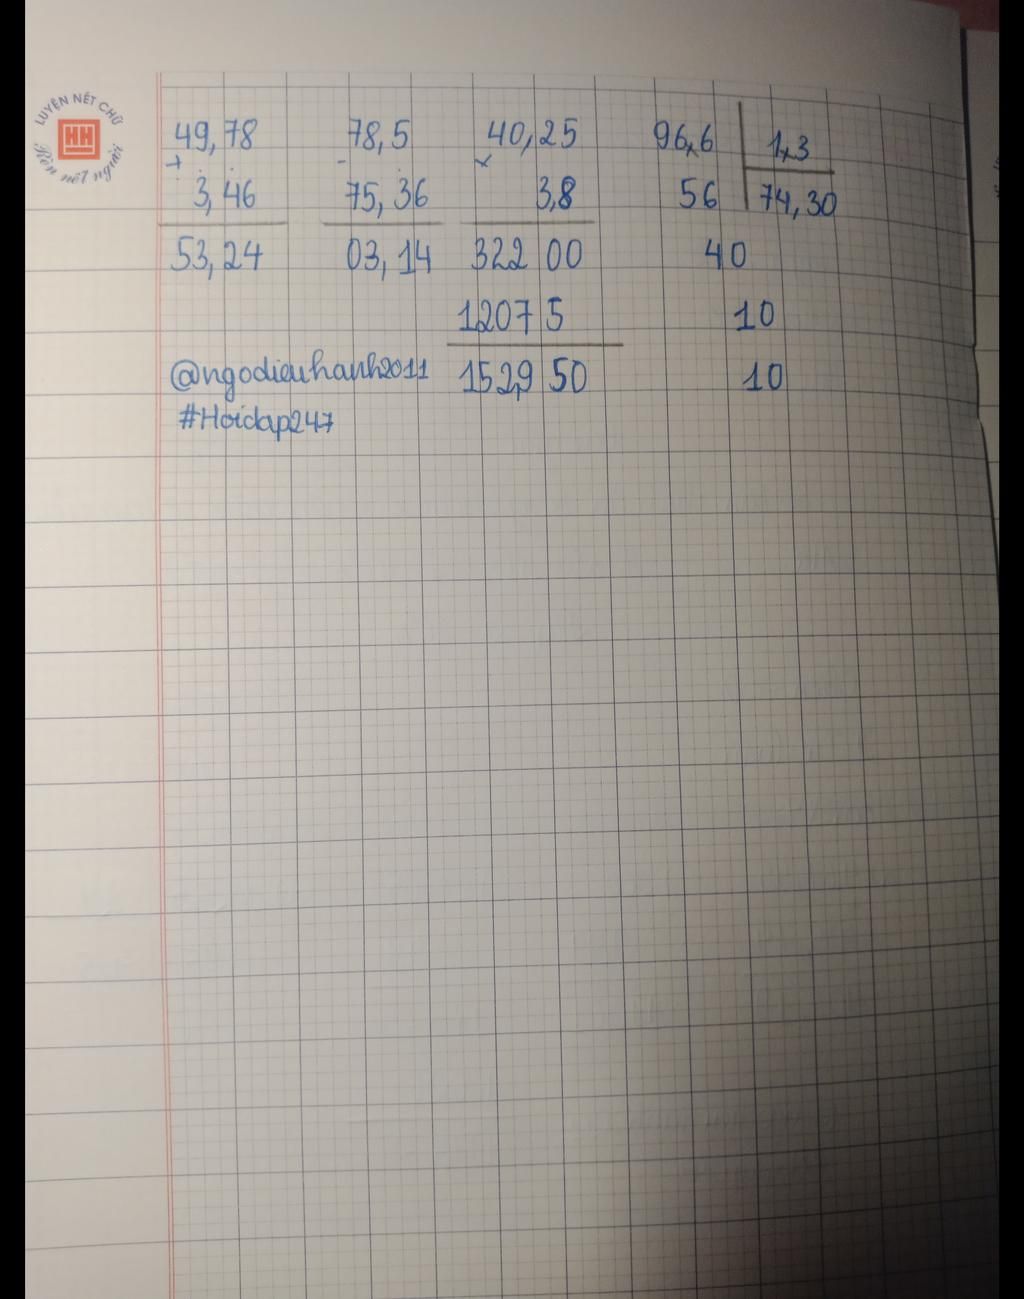 LUYỆN NÉT CHỮ
HH
Rèn nết người
49,78 78,5 40,25 96,6 1,3
+ - x
3,46 75,36 3,8 56 74,30
53,24 03,14 322 00 40
1207 5 10
@ngodieuhanh2011 152,9 50 10
#Hoidap247